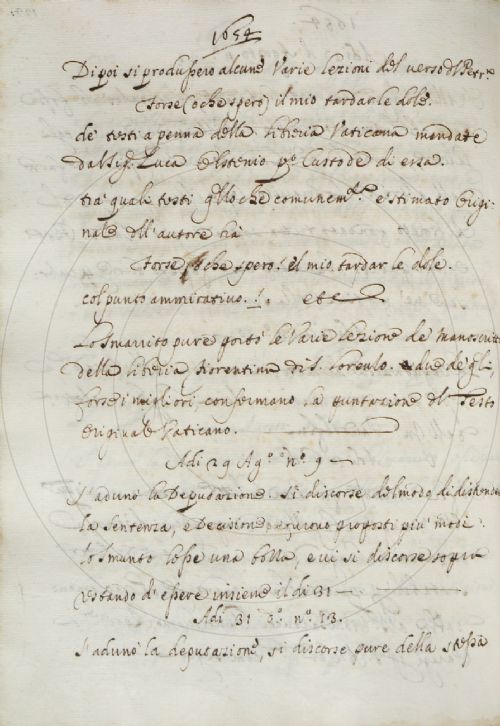 1654
Di poi si produssero alcune Varie lezioni del verso del Petr.ca
Forse (o che spero) il mio tardar le dole.
de' testi a penna della libreria Vaticana mandate
dal Sig.r Luca Olstenio p.o Custode di essa.
tra' quali testi q.llo che comunem.te è stimato Origi-
nale dell'autore ha
Forse, o che spero! el mio tardar le dole.
col punto ammirativo. !. etc
Lo Smarrito pure portò le Varie lezione de' manoscritti
della libreria fiorentina di S. Lorenzo. e due de' q.li,
forse i migliori confermano la puntazione del Testo
Originale Vaticano.
Adì 29 Ag.o n.o 9
S'adunò la Deputazione. Si discorse del modo di distendere
la Sentenza, e Decisione e furono proposti più modi.
lo Smunto lesse una bozza, e vi si discorse sopra
restando d'essere insieme il dì 31
Adì 31 n.o 13.
S'adunò la deputazione, si discorse pure della stessa